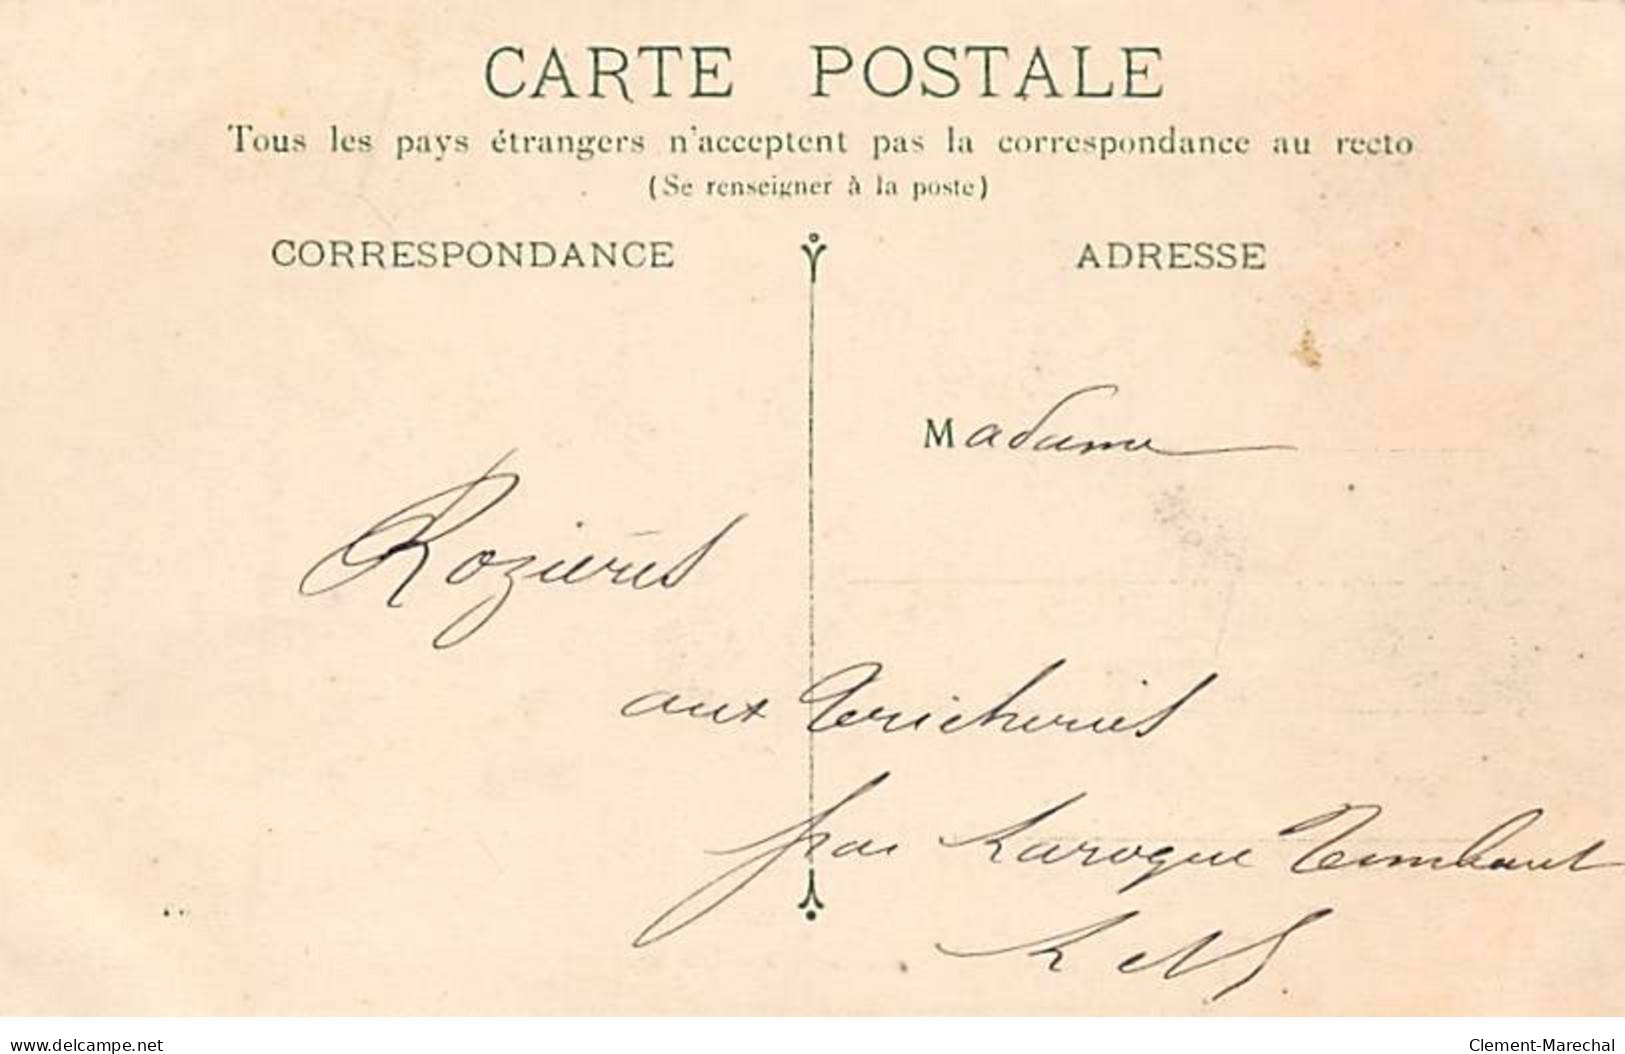 CARTE POSTALE
Tous les pays étrangers n'acceptent pas la correspondance au recto
(Se renseigner à la poste)
CORRESPONDANCE
ADRESSE
Madame
Rozières
aux Tricheries
par Laroque Timbaut
L et G
www.delcampe.net
Clement-Marechal